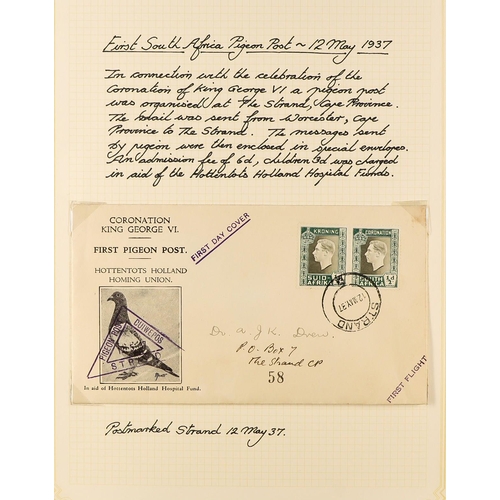 First South Africa Pigeon Post ~ 12 May 1937
In connection with the celebration of the
Coronation of King George VI a pigeon post
was organised at The Strand, Cape Province.
The mail was sent from Worcester, Cape
Province to The Strand. The messages sent
by pigeon were then enclosed in special envelopes.
An admission fee of 6d, children 3d was charged
in aid of the Hottentots Holland Hospital Funds.
CORONATION
KING GEORGE VI.
FIRST PIGEON POST.
HOTTENTOTS HOLLAND
HOMING UNION.
FIRST DAY COVER
KRONING
SUID-
AFRIKA
CORONATION
SOUTH
AFRICA
½d
STRAND
12 MAY 37
PIGEON POST
DUIWEPOS
STRAND
In aid of Hottentots Holland Hospital Fund.
Dr A J K. Drew.
P.O. Box 7
The Strand CP
58
FIRST FLIGHT
Postmarked Strand 12 May 37.